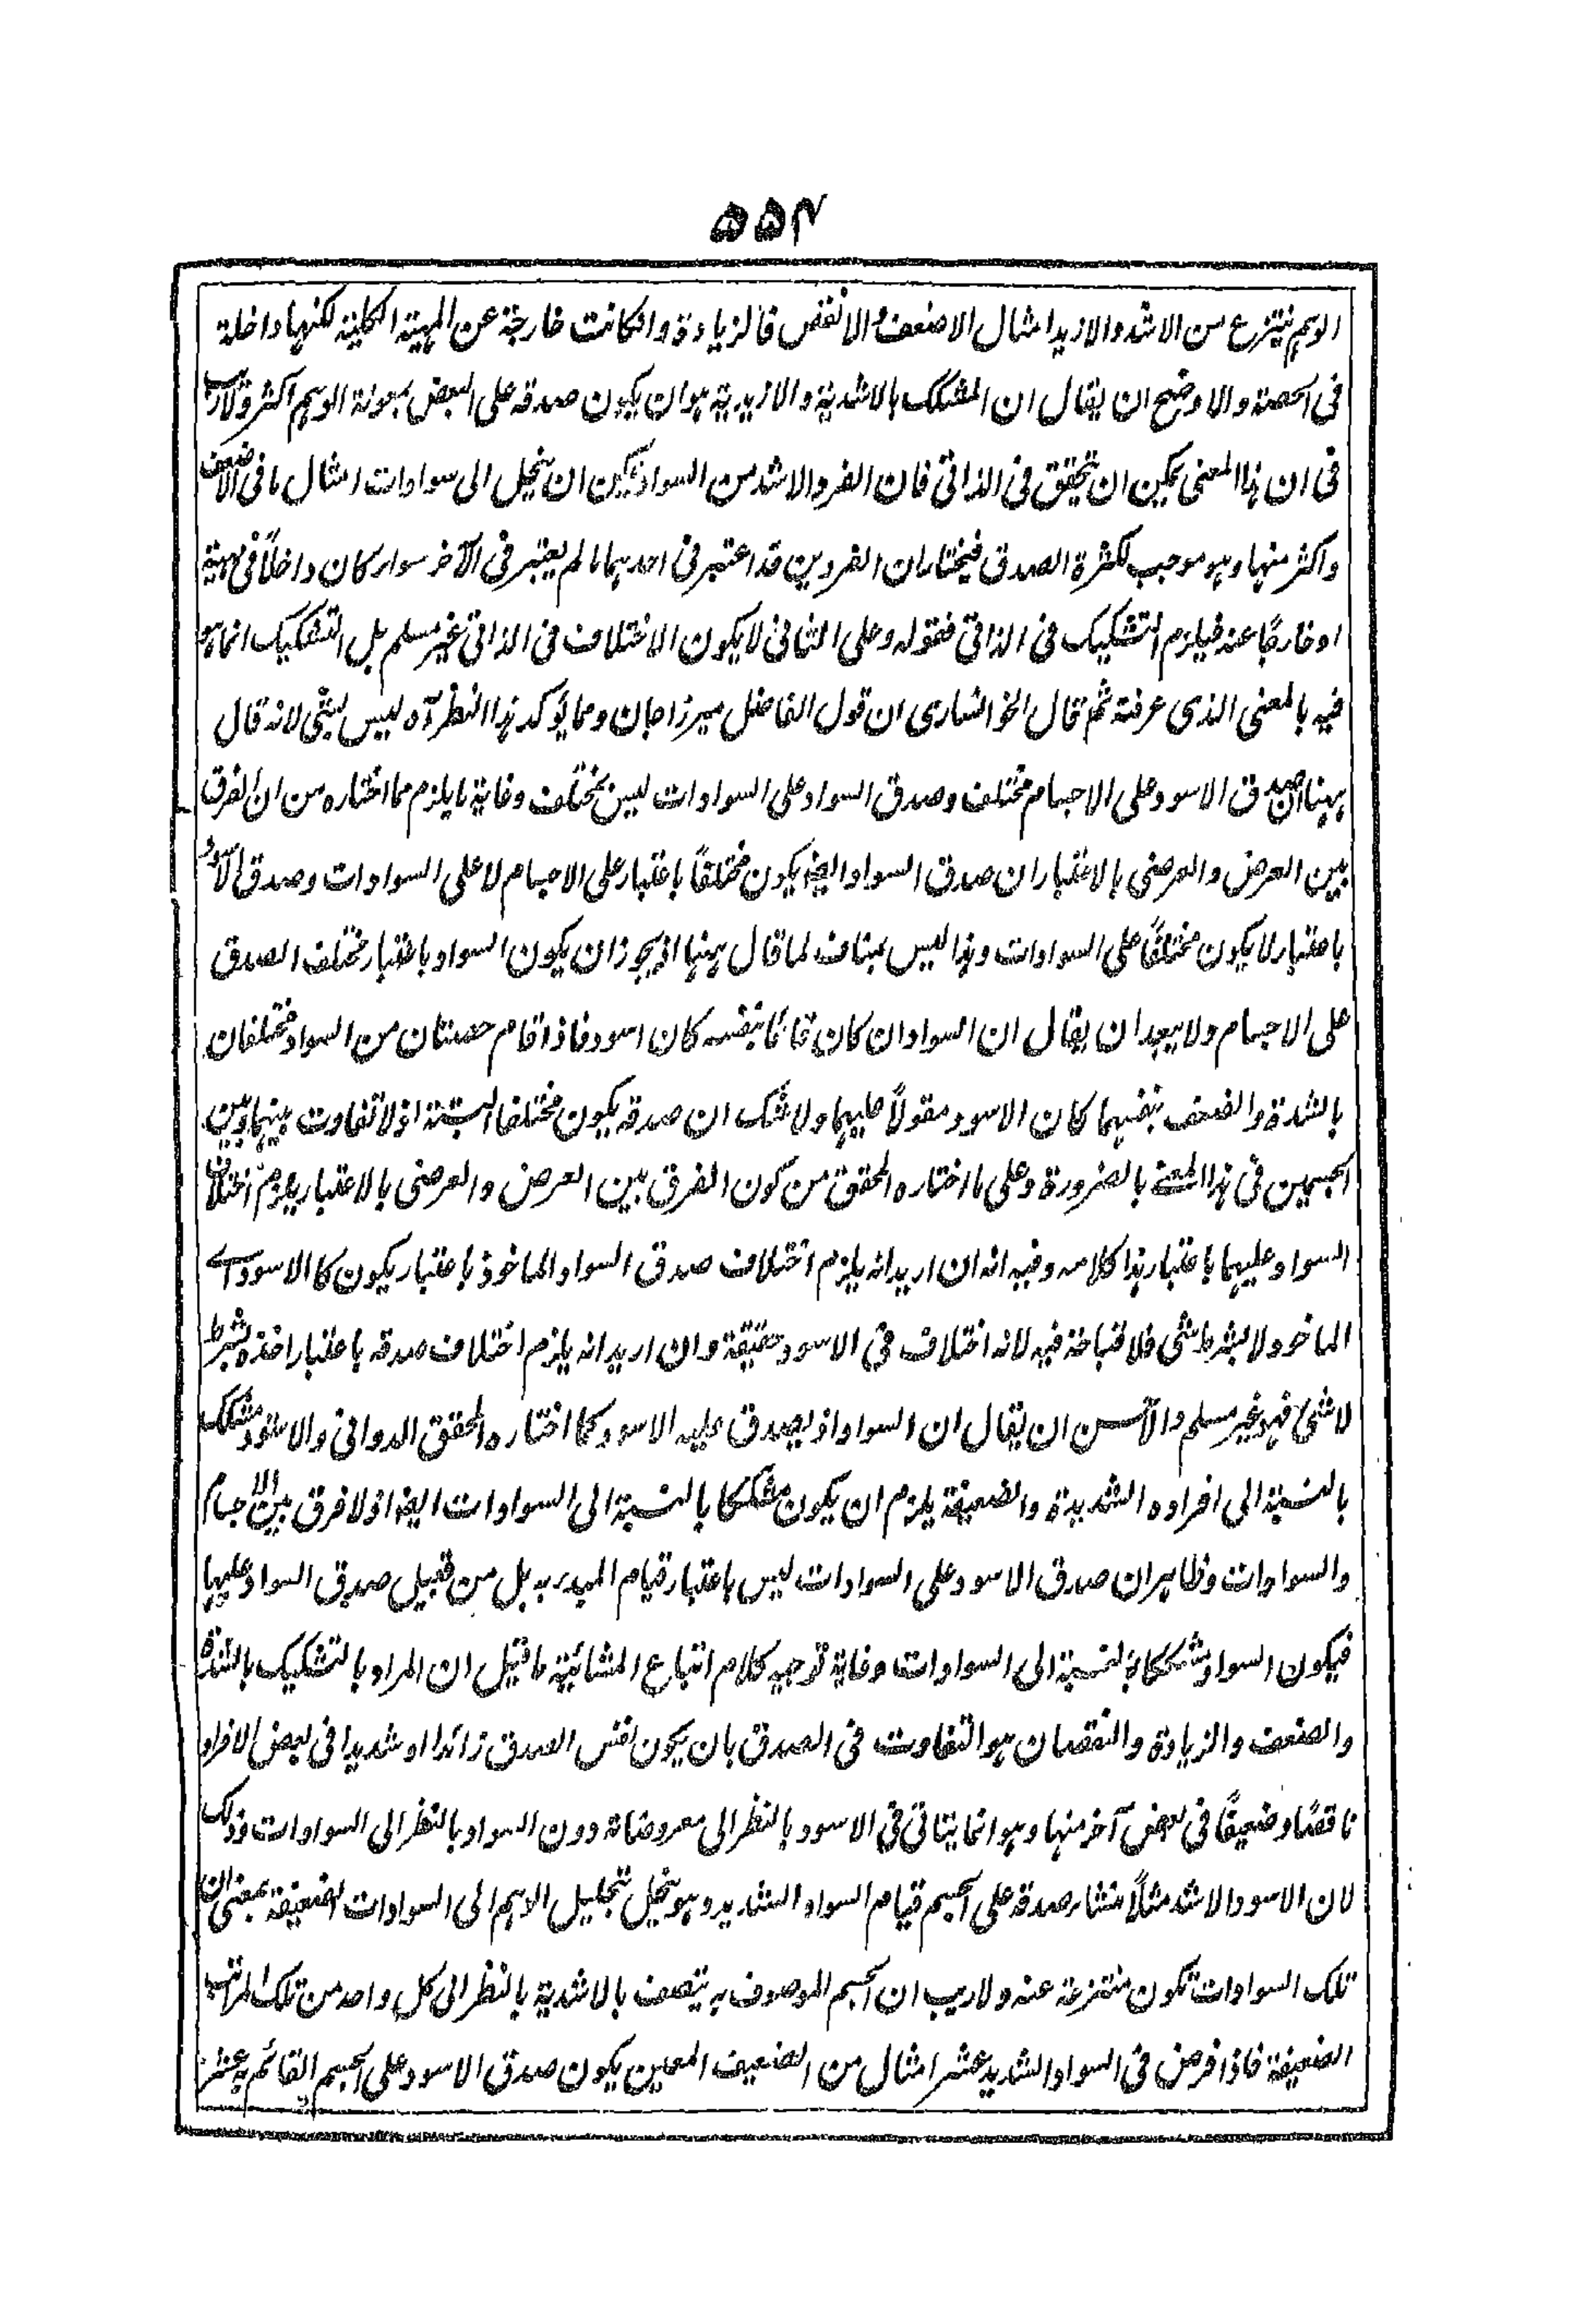 ۵۵۴
الوہم ینتزع من الاشد والازید امثال الاضعف والانقص فالزیادة وان کانت خارجة عن المہیة الکلیة لکنہا داخلة
فی الحصة والاوضح ان یقال ان المشکک بالاشدیة والازیدیة ہو ان یکون صدقہ علی البعض بمعونة الوہم اکثر ولاریب
فی ان ہذا المعنی یمکن ان یتحقق فی الذاتی فان الفرد الاشد من السواد یمکن ان ینحل الی سوادات امثال ما فی الاضعف
واکثر منہا وہو موجب لکثرة الصدق فیختار ان الفردین قد اعتبر فی احدہما ما لم یعتبر فی الآخر سواء کان داخلاً فی مہیة
او خارجًا عنہ فیلزم التشکیک فی الذاتی فقولہ وعلی الثانی لا یکون الاختلاف فی الذاتی غیر مسلم بل التشکیک انما ہو
فیہ بالمعنی الذی عرفتہ ثم قال الخوانساری ان قول الفاضل میرزا جان ومما یؤکد ہذا النظر آہ لیس بشی لانہ قال
ہہنا ان صدق الاسود علی الاجسام مختلف وصدق السواد علی السوادات لیس بمختلف وغایة ما یلزم مما اختارہ من ان الفرق
بین العرض والعرضی بالاعتبار ان صدق السواد ایضا یکون مختلفًا باعتبار علی الاجسام لا علی السوادات وصدق الاسود
باعتبار لا یکون مختلفًا علی السوادات وہذا لیس بمناف لما قال ہہنا اذ یجوز ان یکون السواد باعتبار مختلف الصدق
علی الاجسام ولا یبعد ان یقال ان السواد ان کان قائمًا بنفسہ کان اسود فاذا قام حصتان من السواد مختلفان
بالشدة والضعف بنفسہما کان الاسود مقولاً علیہما ولا شک ان صدقہ یکون مختلفا البتة اذ لا تفاوت بینہما وبین
الجسمین فی ہذا المعنے بالضرورة وعلی ما اختارہ المحقق من کون الفرق بین العرض والعرضی بالاعتبار یلزم اختلاف
السواد علیہما باعتبار ہذا کلامہ وفیہ انہ ان ارید انہ یلزم اختلاف صدق السواد الماخوذ باعتبار یکون کالاسود اے
الماخوذ لا بشرط شی فلا قباحة فیہ لانہ اختلاف فی الاسود حقیقة وان ارید انہ یلزم اختلاف صدقہ باعتبار اخذہ بشرط
لا شئ فہو غیر مسلم والاحسن ان یقال ان السواد اذ یصدق علیہ الاسود کما اختارہ المحقق الدوانی والاسود مشکک
بالنسبة الی افرادہ الشدیدة والضعیفة یلزم ان یکون مشککا بالنسبة الی السوادات ایضا اذ لا فرق بین الاجسام
والسوادات وظاہر ان صدق الاسود علی السوادات لیس باعتبار قیام المبدء بہ بل من قبیل صدق السواد علیہا
فیکون السواد مشککا بالنسبة الی السوادات وغایة توجیہ کلام اتباع المشائیة ما قیل ان المراد بالتشکیک بالشدة
والضعف والزیادة والنقصان ہو التفاوت فی الصدق بان یکون نفس الصدق زائدا او شدیدا فی بعض الافراد
ناقصًا وضعیفًا فی بعض آخر منہا وہو انما یتاتی فی الاسود بالنظر الی معروضاتہ دون السواد بالنظر الی السوادات وذلک
لان الاسود الاشد مثلاً منشاء صدقہ علی الجسم قیام السواد الشدید وہو ینحل بتحلیل الوہم الی السوادات الضعیفة بمعنی ان
تلک السوادات تکون منتزعة عنہ ولا ریب ان الجسم الموصوف بہ یتصف بالاشدیة بالنظر الی کل واحد من تلک المراتب
الضعیفة فاذا فرض فی السواد الشدید عشر امثال من الضعیف المعین یکون صدق الاسود علی الجسم القائم بہ عشر